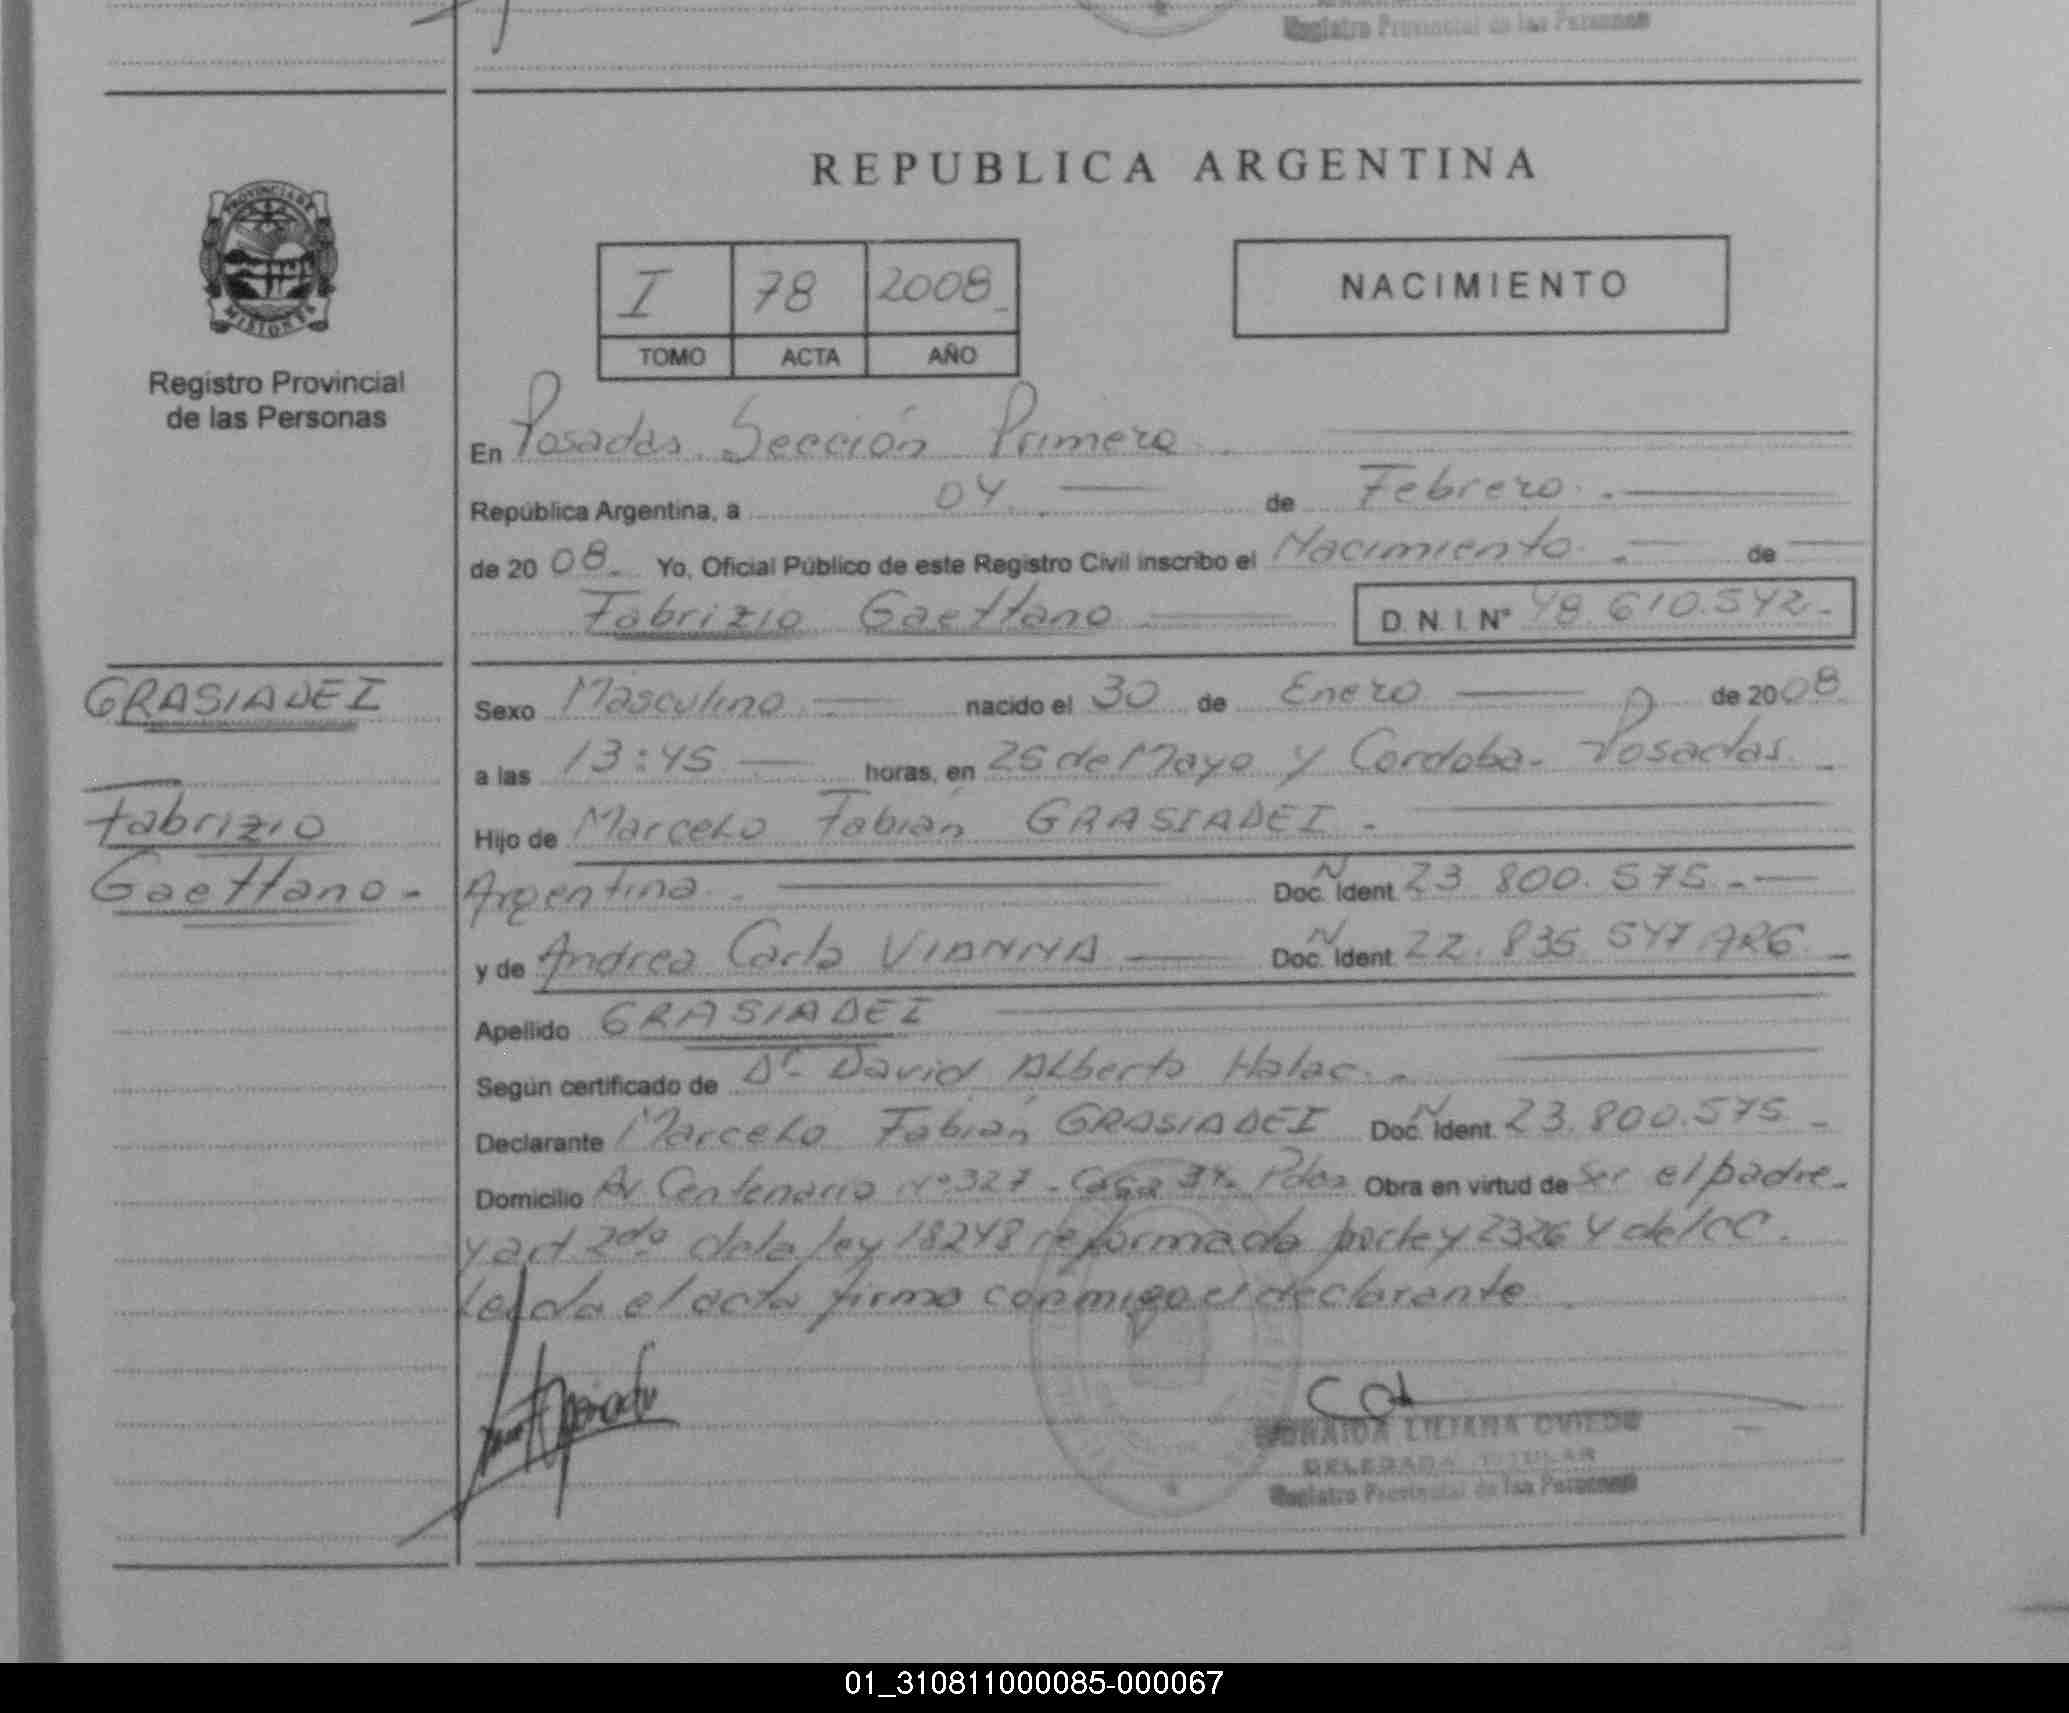 Registro Provincial de las Personas
REPUBLICA ARGENTINA
PROVINCIA DE
MISIONES
Registro Provincial
de las Personas
I 78 2008
TOMO ACTA AÑO
NACIMIENTO
En Posadas Sección Primera
República Argentina, a 04 de Febrero.
de 2008. Yo, Oficial Público de este Registro Civil inscribo el Nacimiento. de
Fabrizio Gaettano D.N.I. Nº 48.610.542.-
GRASIADEI
Fabrizio
Gaettano.-
Sexo Masculino nacido el 30 de Enero de 2008.
a las 13:45 horas, en 25 de Mayo y Cordoba. Posadas.
Hijo de Marcelo Fabián GRASIADEI.
Argentina. Doc. Ident. N 23.800.575.-
y de Andrea Carla VIANNA Doc. Ident. N 22.835.547 ARG.
Apellido GRASIADEI
Según certificado de Dr. David Alberto Halac.
Declarante Marcelo Fabián GRASIADEI Doc. Ident. N 23.800.575.-
Domicilio Av Centenario Nº 327 - Casa 34. Pdas Obra en virtud de Ser el padre.
y art 2do de la ley 18248 reformado por ley 23264 del CC.
Leida el acta firma conmigo el declarante.
LILIANA OVIEDO
DELEGADA TITULAR
Registro Provincial de las Personas
01_310811000085-000067